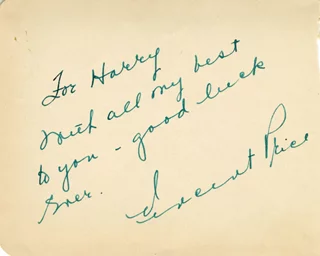 For Harry
With all my best
to you - good luck
Ever.
Vincent Price